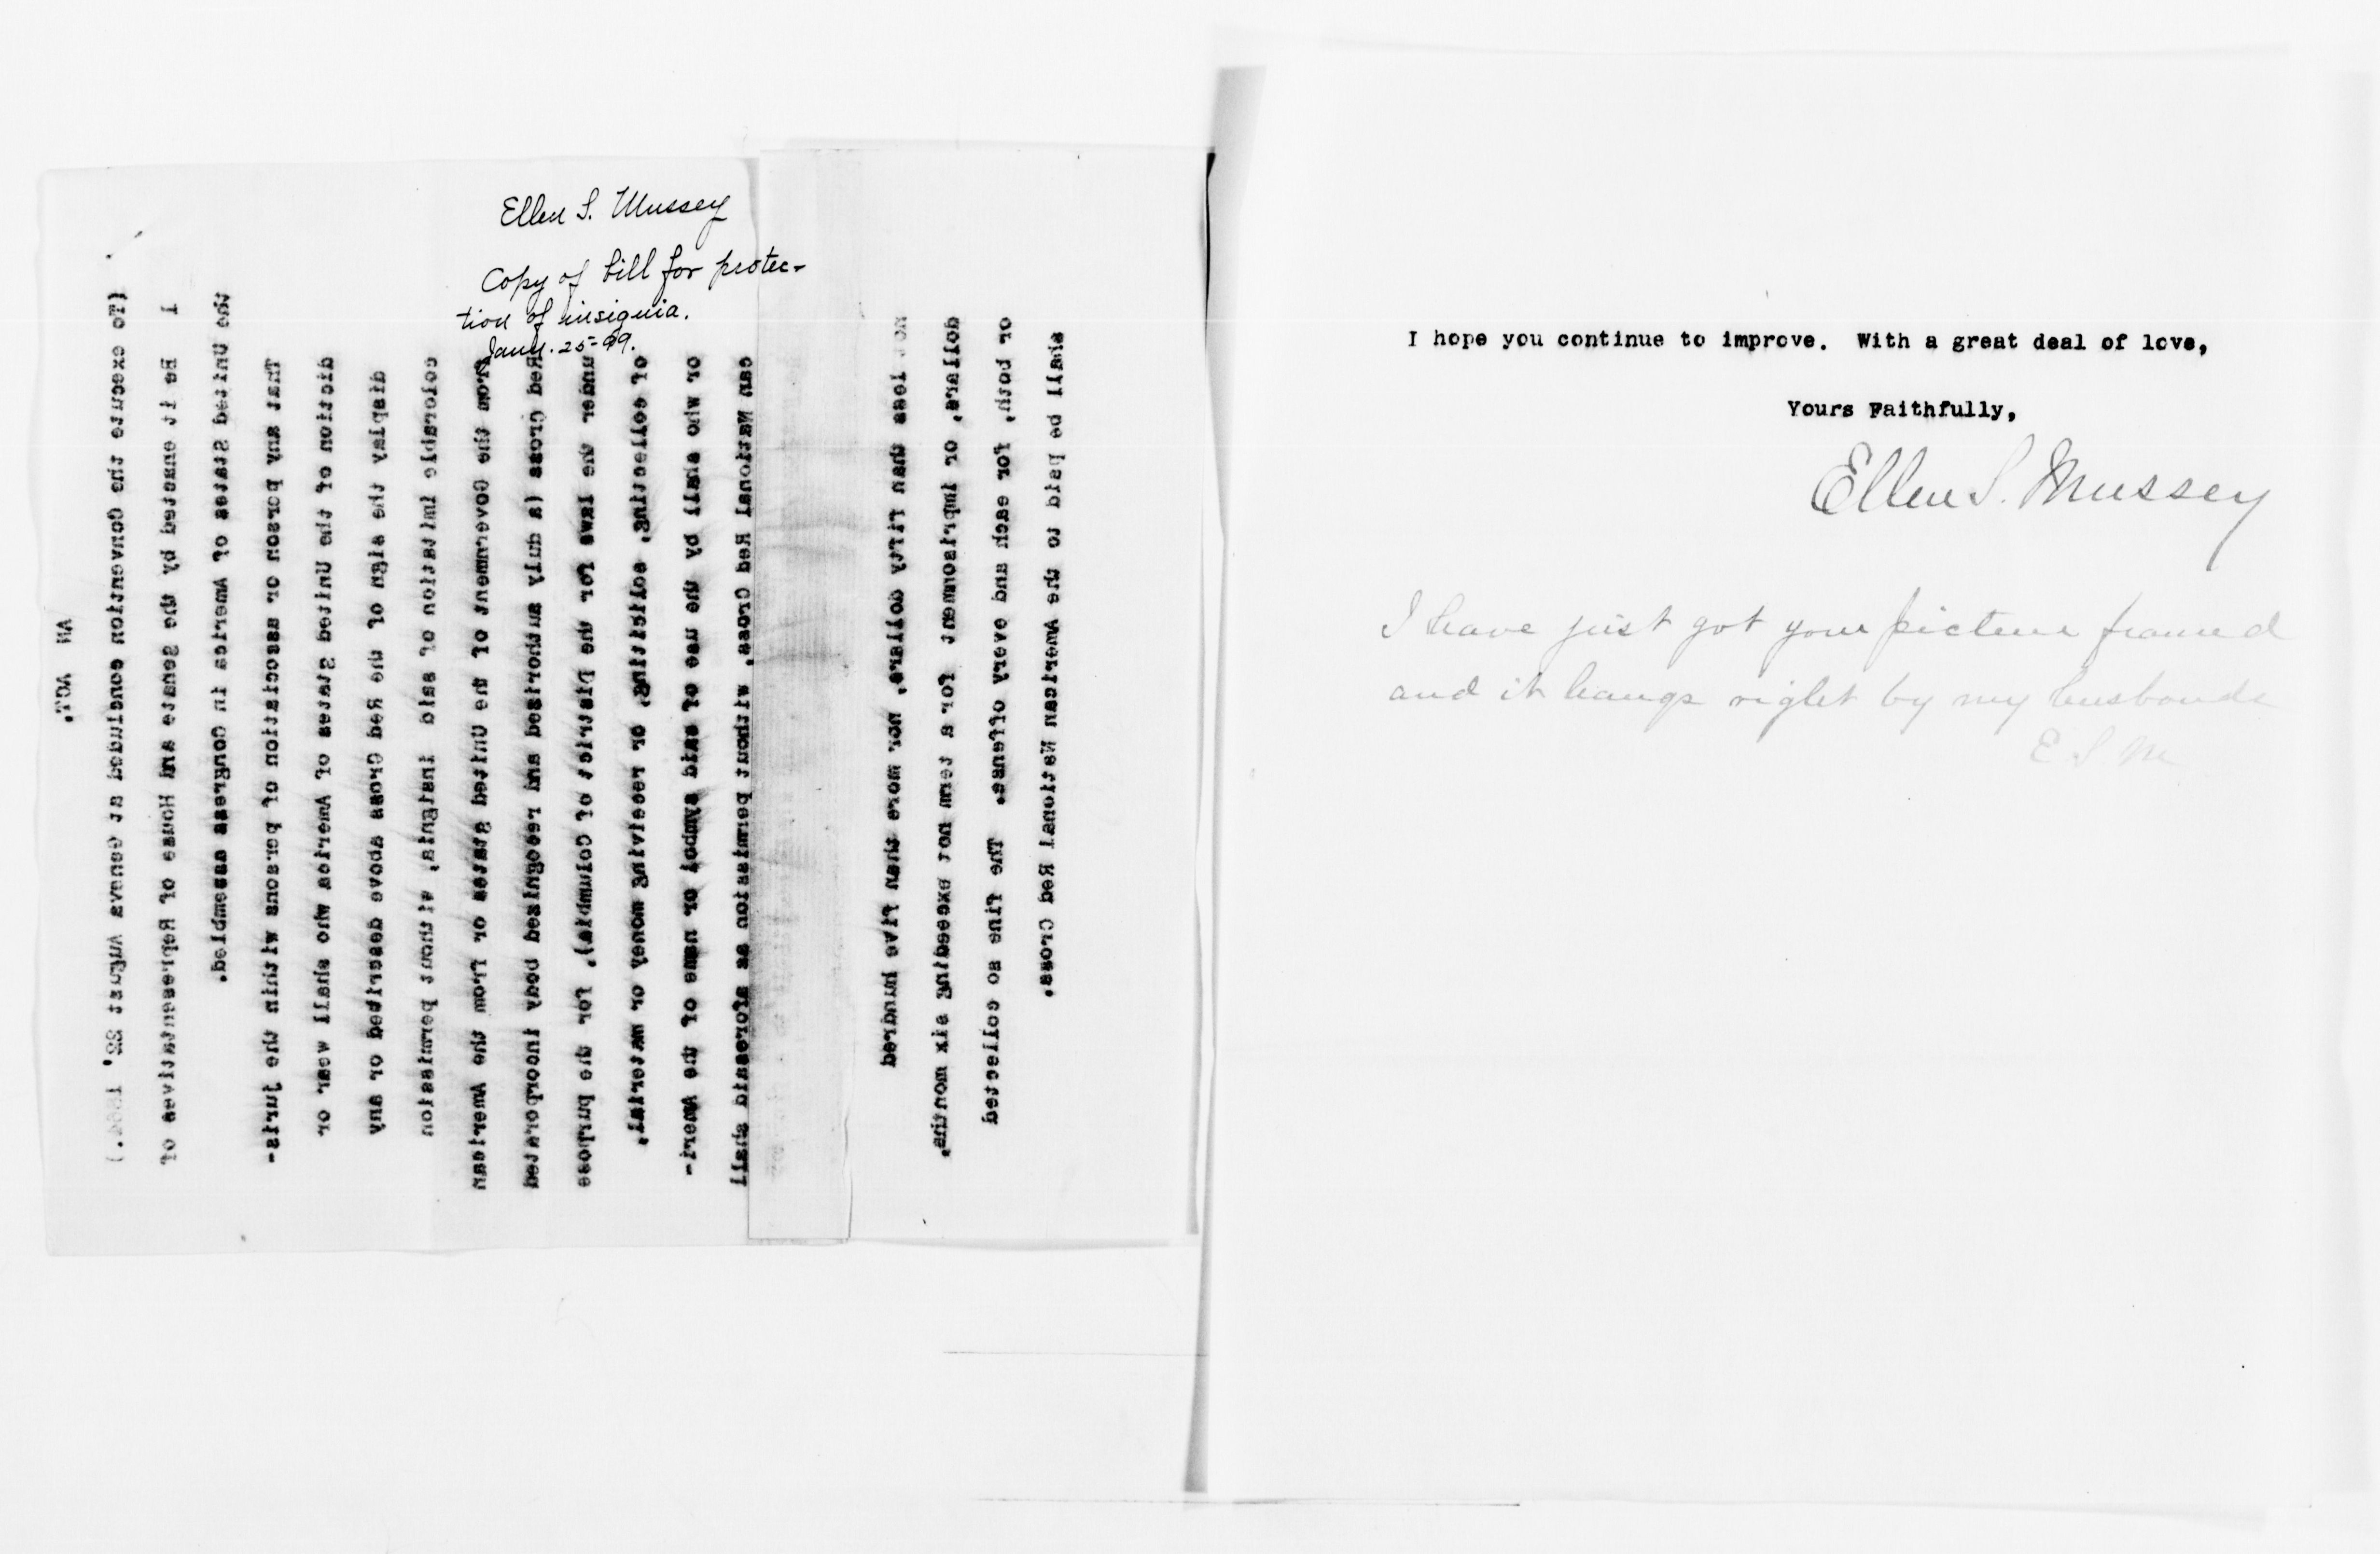 Ellen S. Mussey
Copy of bill for protec-
tion of insignia.
Jany. 25-99.
AN ACT.
(To execute the Convention concluded at Geneva August 22, 1864.)
1 Be it enacted by the Senate and House of Representatives of
the United States of America in Congress assembled.
That any person or association of persons within the juris-
diction of the United States of America who shall wear or
display the sign of the Red Cross above described or any
colorable imitation of said insignia, without permission
from the Government of the United States or from the American
Red Cross (a duly authorized and recognised body incorporated
under the laws for the District of Columbia), for the purpose
of collecting, soliciting, or receiving money or material,
or who shall by the use of said symbol or name of the Ameri-
can National Red Cross, without permission as aforesaid shall
not less than fifty dollars, nor more than five hundred
dollars, or imprisonment for a term not exceeding six months,
or both, for each and every offense. The fine so collected
shall be paid to the American National Red Cross.
I hope you continue to improve. With a great deal of love,
Yours Faithfully,
Ellen S. Mussey
I have just got your picture framed
and it hangs right by my husbands
E S M